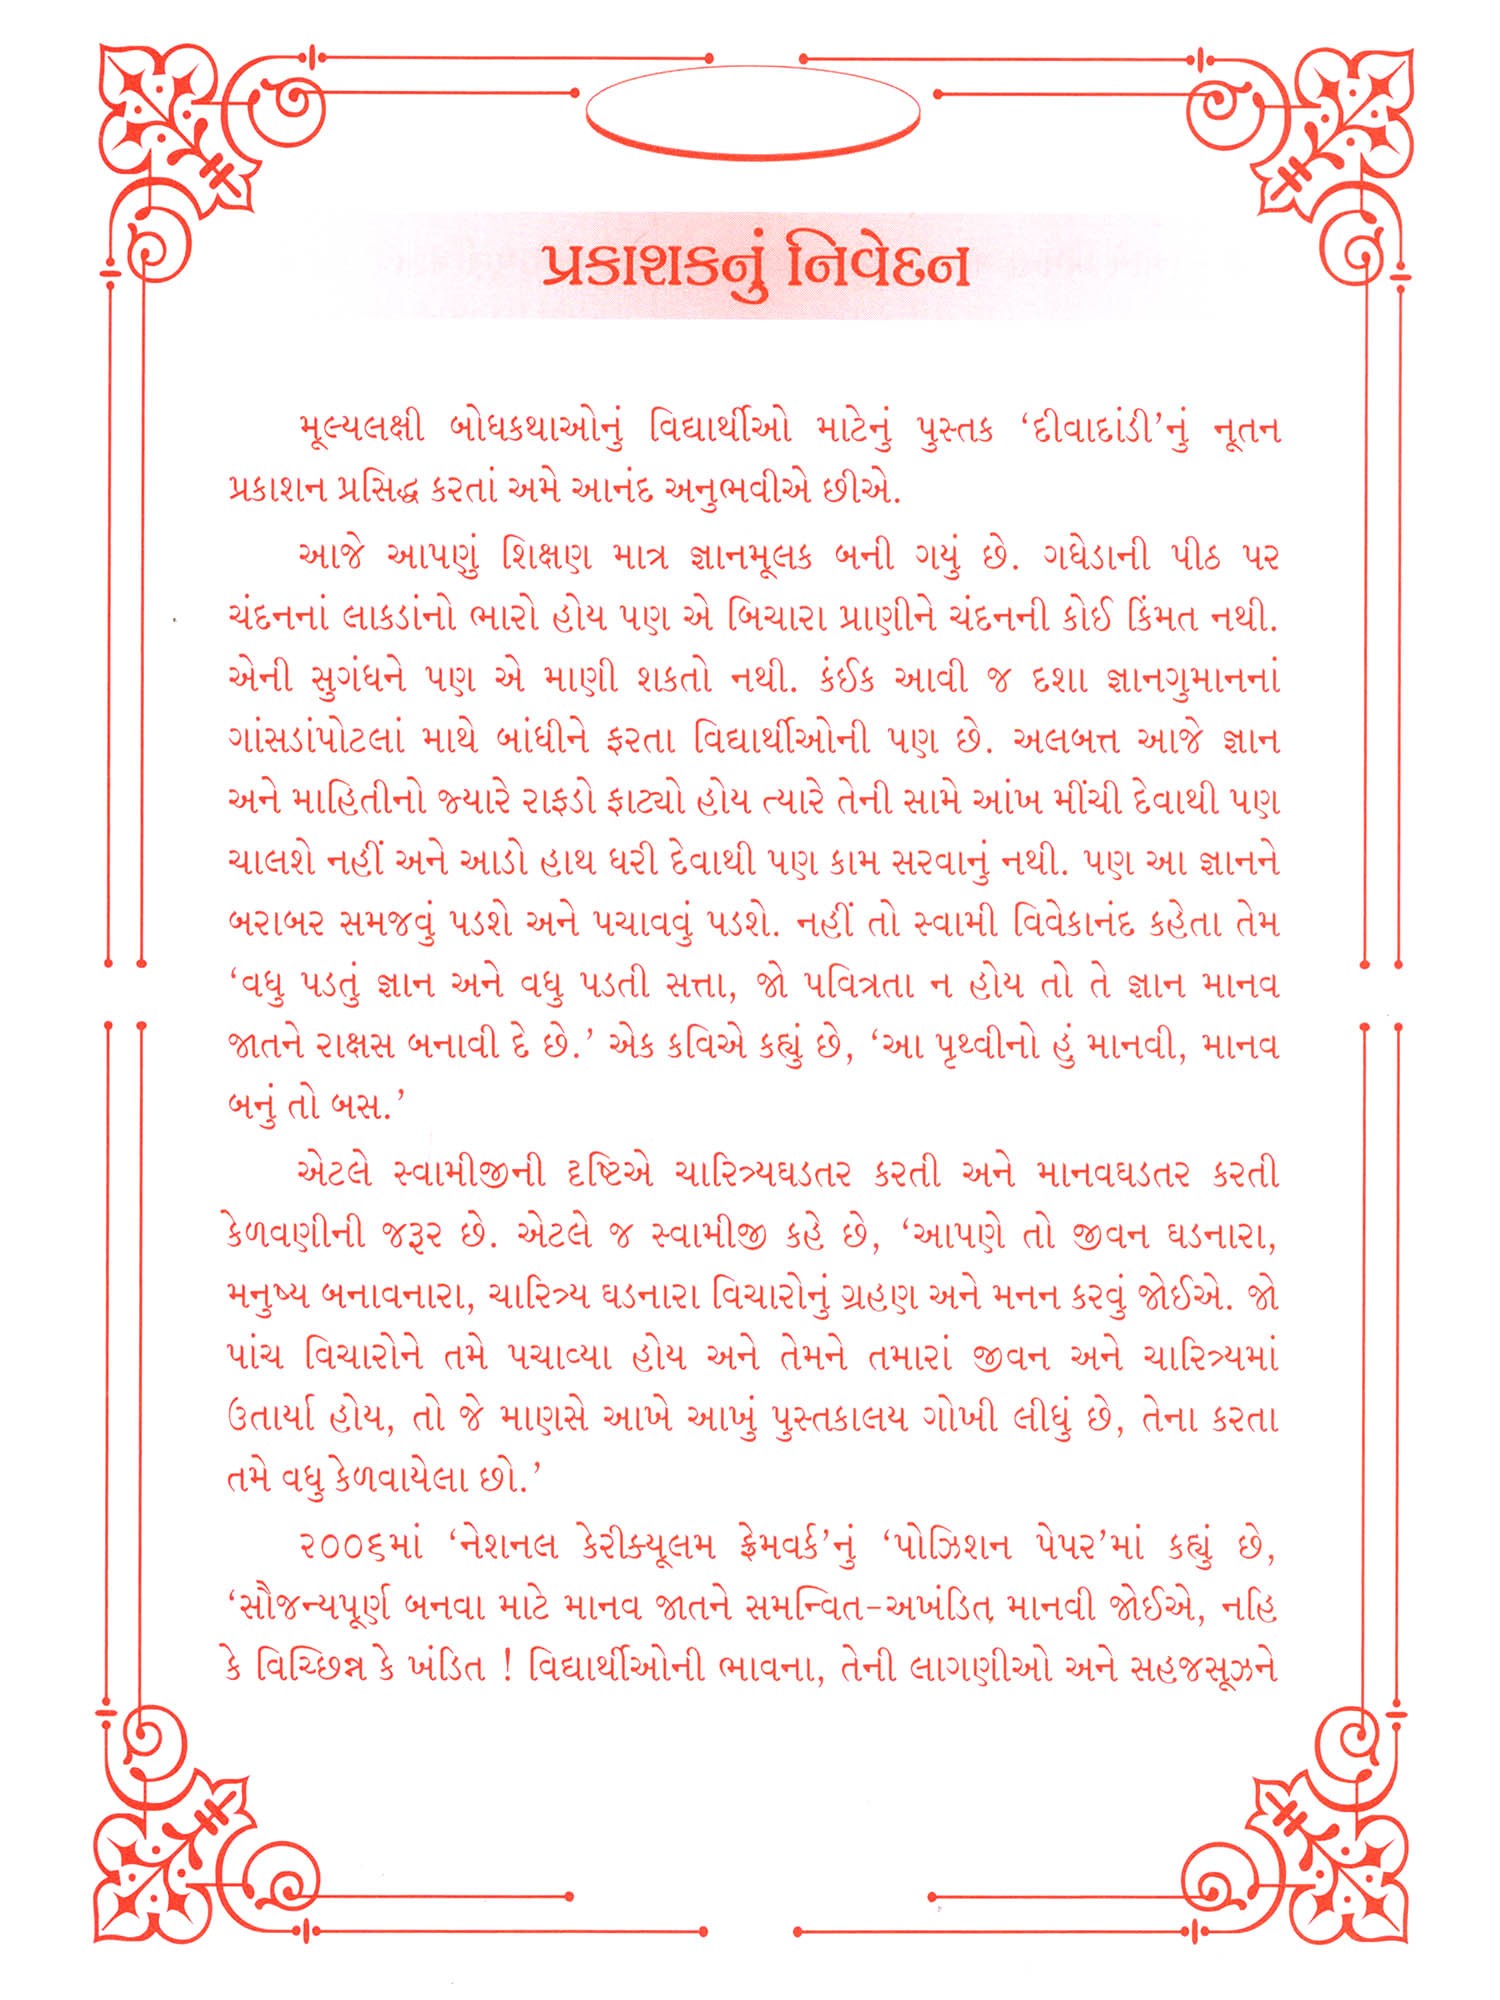 પ્રકાશકનું નિવેદન
મૂલ્યલક્ષી બોધકથાઓનું વિદ્યાર્થીઓ માટેનું પુસ્તક ‘દીવાદાંડી’નું નૂતન
પ્રકાશન પ્રસિદ્ધ કરતાં અમે આનંદ અનુભવીએ છીએ.
આજે આપણું શિક્ષણ માત્ર જ્ઞાનમૂલક બની ગયું છે. ગધેડાની પીઠ પર
ચંદનનાં લાકડાંનો ભારો હોય પણ એ બિચારા પ્રાણીને ચંદનની કોઈ કિંમત નથી.
એની સુગંધને પણ એ માણી શકતો નથી. કંઈક આવી જ દશા જ્ઞાનગુમાનનાં
ગાંસડાંપોટલાં માથે બાંધીને ફરતા વિદ્યાર્થીઓની પણ છે. અલબત્ત આજે જ્ઞાન
અને માહિતીનો જ્યારે રાફડો ફાટ્યો હોય ત્યારે તેની સામે આંખ મીંચી દેવાથી પણ
ચાલશે નહીં અને આડો હાથ ધરી દેવાથી પણ કામ સરવાનું નથી. પણ આ જ્ઞાનને
બરાબર સમજવું પડશે અને પચાવવું પડશે. નહીં તો સ્વામી વિવેકાનંદ કહેતા તેમ
‘વધુ પડતું જ્ઞાન અને વધુ પડતી સત્તા, જો પવિત્રતા ન હોય તો તે જ્ઞાન માનવ
જાતને રાક્ષસ બનાવી દે છે.’ એક કવિએ કહ્યું છે, ‘આ પૃથ્વીનો હું માનવી, માનવ
બનું તો બસ.’
એટલે સ્વામીજીની દૃષ્ટિએ ચારિત્ર્યઘડતર કરતી અને માનવઘડતર કરતી
કેળવણીની જરૂર છે. એટલે જ સ્વામીજી કહે છે, ‘આપણે તો જીવન ઘડનારા,
મનુષ્ય બનાવનારા, ચારિત્ર્ય ઘડનારા વિચારોનું ગ્રહણ અને મનન કરવું જોઈએ. જો
પાંચ વિચારોને તમે પચાવ્યા હોય અને તેમને તમારાં જીવન અને ચારિત્ર્યમાં
ઉતાર્યા હોય, તો જે માણસે આખે આખું પુસ્તકાલય ગોખી લીધું છે, તેના કરતા
તમે વધુ કેળવાયેલા છો.’
૨૦૦૬માં ‘નેશનલ કેરીક્યૂલમ ફ્રેમવર્ક’નું ‘પોઝિશન પેપર’માં કહ્યું છે,
‘સૌજન્યપૂર્ણ બનવા માટે માનવ જાતને સમન્વિત-અખંડિત માનવી જોઈએ, નહિ
કે વિચ્છિન્ન કે ખંડિત ! વિદ્યાર્થીઓની ભાવના, તેની લાગણીઓ અને સહજસૂઝને